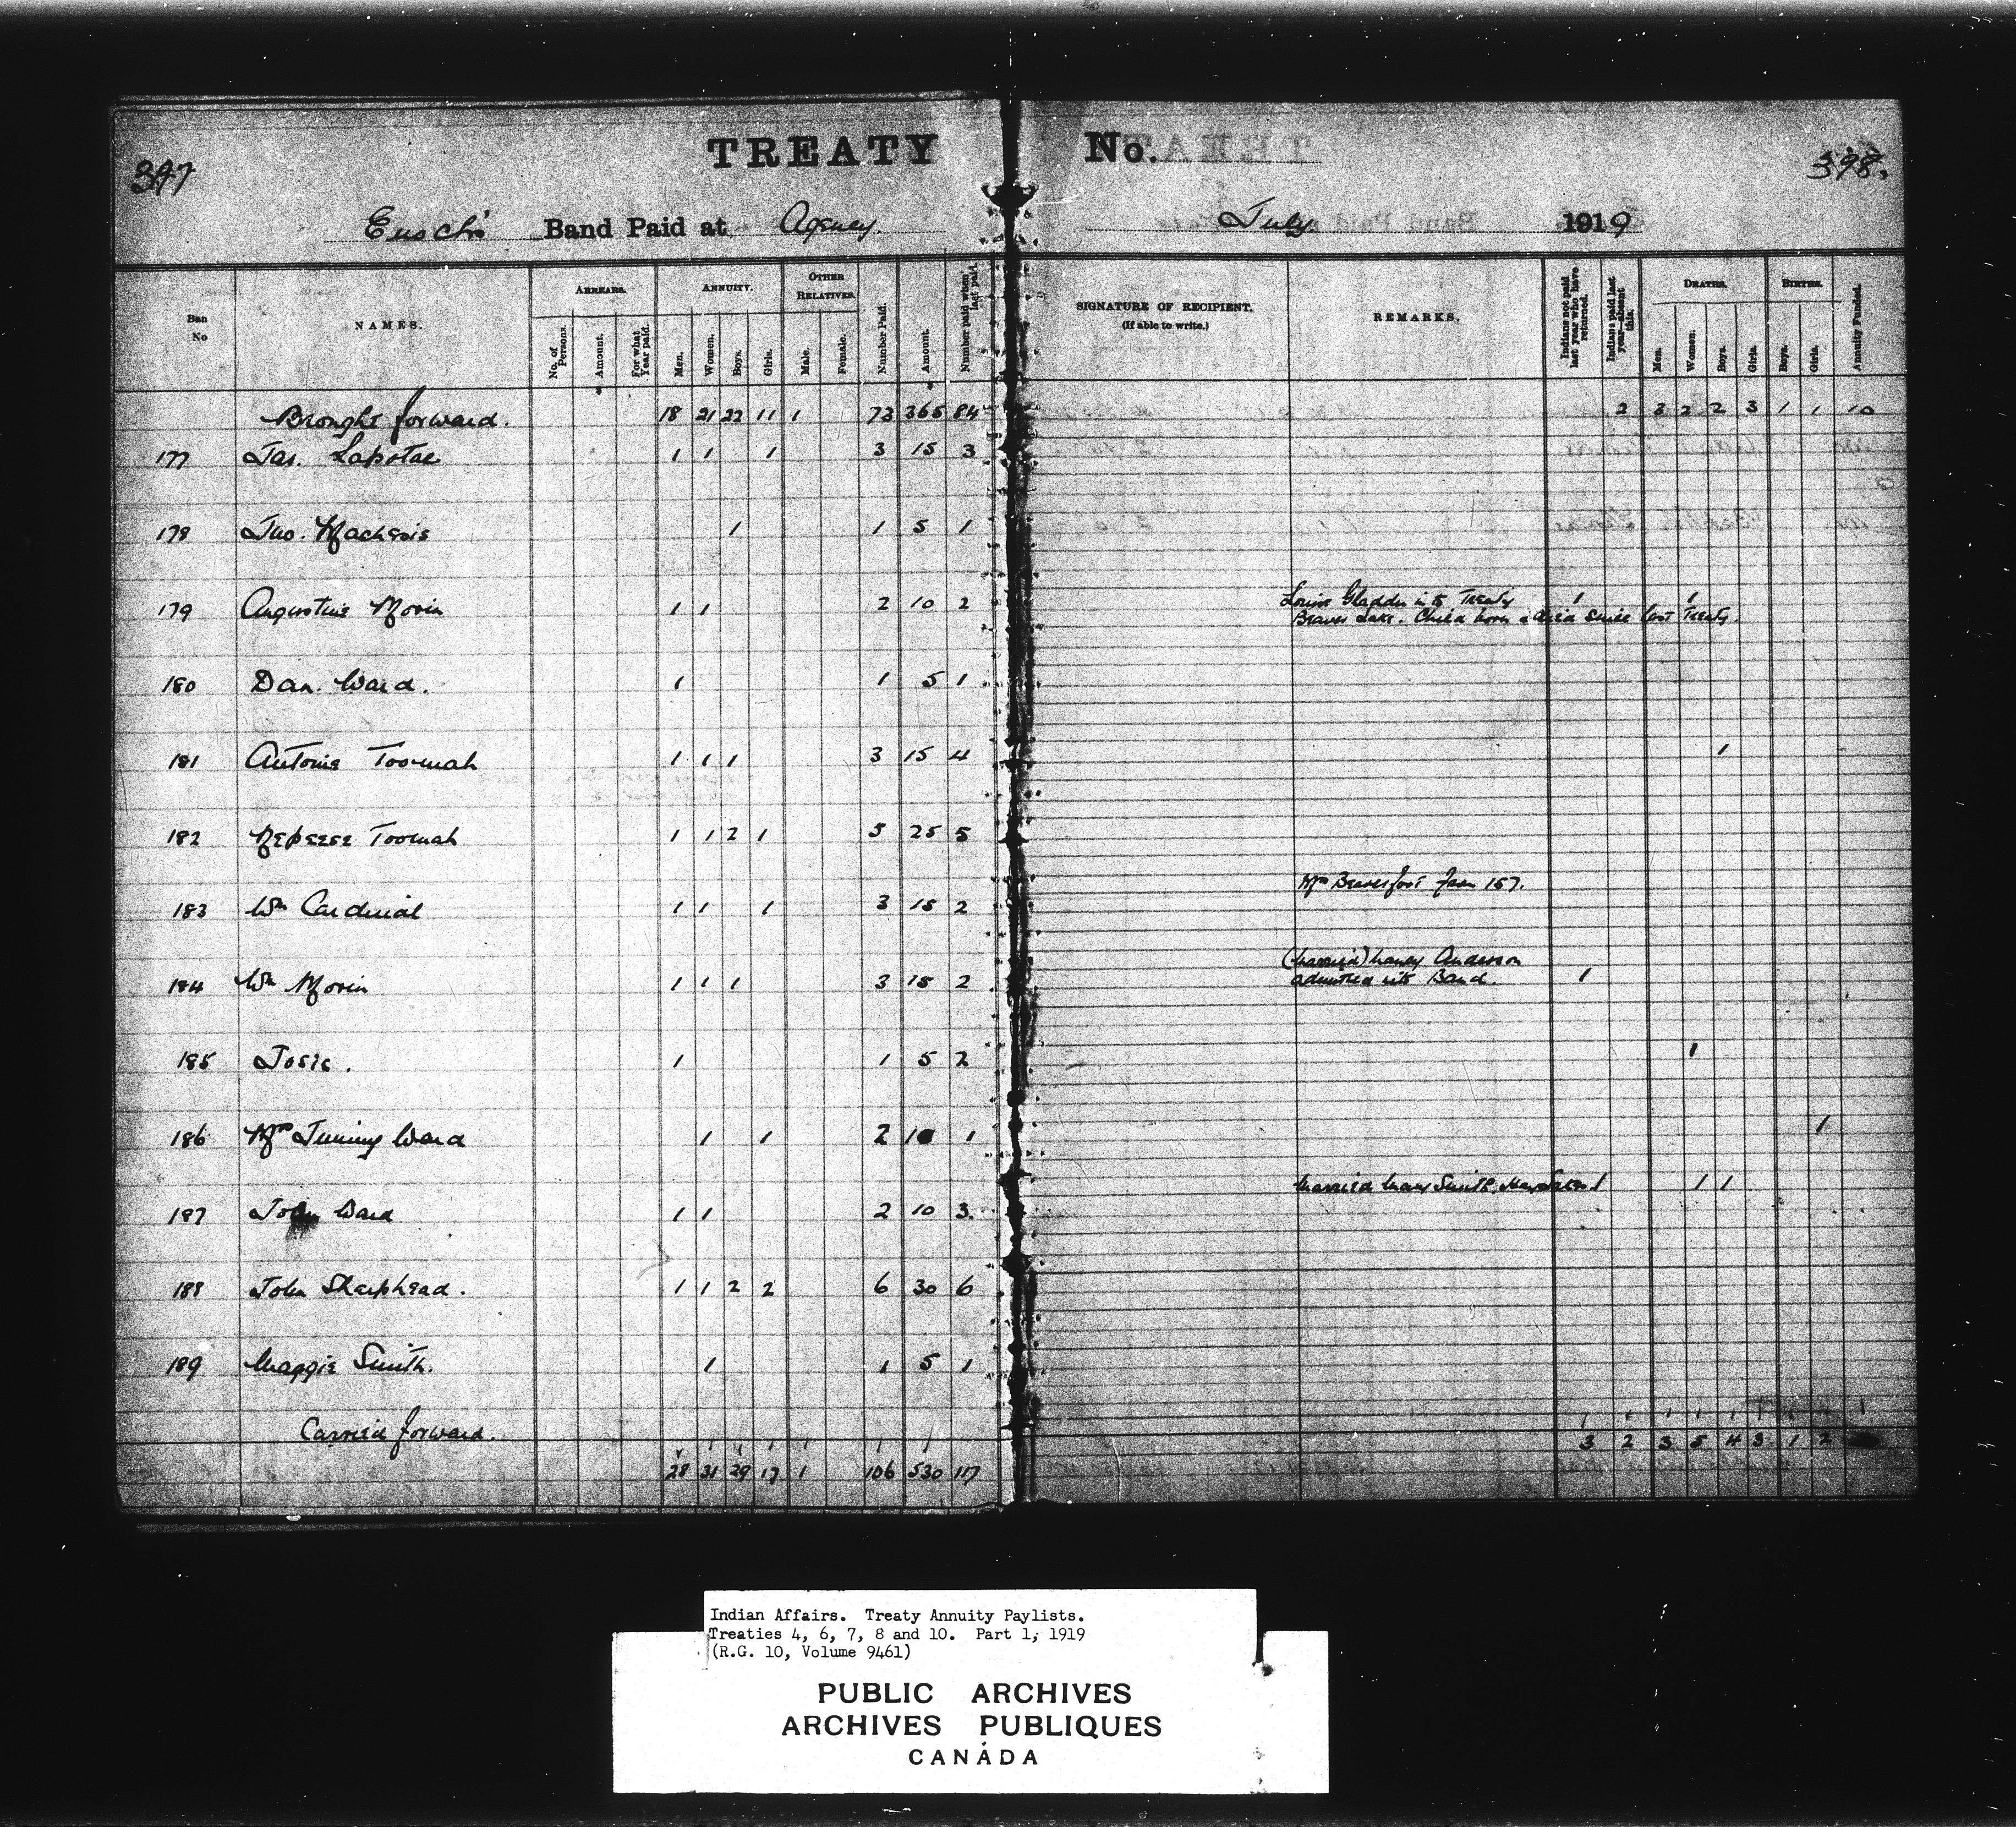 397
TREATY No.
398.
Enoch's Band Paid at Agency July 1919
Ban No
NAMES.
ARREARS.
No. of Persons.
Amount.
For what Year paid.
ANNUITY.
Men.
Women.
Boys.
Girls.
OTHER RELATIVES.
Male.
Female.
Number Paid.
Amount.
Number paid when last paid.
SIGNATURE OF RECIPIENT.
(If able to write.)
REMARKS.
Indians not paid last year who have returned.
Indians paid last year—absent this.
DEATHS.
Men.
Women.
Boys.
Girls.
BIRTHS.
Boys.
Girls.
Annuity Funded.
Brought forward. 18 21 22 11 1 73 365 84 2 3 2 2 3 1 1 10
177 Jas. Lapotac 1 1 1 3 15 3
178 Jno. 1 1 5 1
179 Augustine Morin 1 1 2 10 2 Louise Gladder into Treaty 1 1
Beaver Lake. Child born & died since last Treaty.
180 Dan. Ward. 1 1 5 1
181 Antoine Toomah 1 1 1 3 15 4 1
182 Toomah 1 1 2 1 5 25 5
Mrs Beaverfoot from 157.
183 Wm Cardinal 1 1 1 3 15 2
(Married) Nancy Anderson
184 Wm Morin 1 1 1 3 15 2 admitted into Band. 1
185 Josie. 1 1 5 2 1
186 Mrs Jimmy Ward 1 1 2 10 1 1
Married Mary Smith, 1 1 1
187 John Ward 1 1 2 10 3
188 John Sharphead. 1 1 2 2 6 30 6
189 Maggie Smith. 1 1 5 1
Carried forward.
28 31 29 17 1 106 530 117 3 2 3 5 4 3 1 2
Indian Affairs. Treaty Annuity Paylists.
Treaties 4, 6, 7, 8 and 10. Part 1, 1919
(R.G. 10, Volume 9461)
PUBLIC ARCHIVES
ARCHIVES PUBLIQUES
CANADA